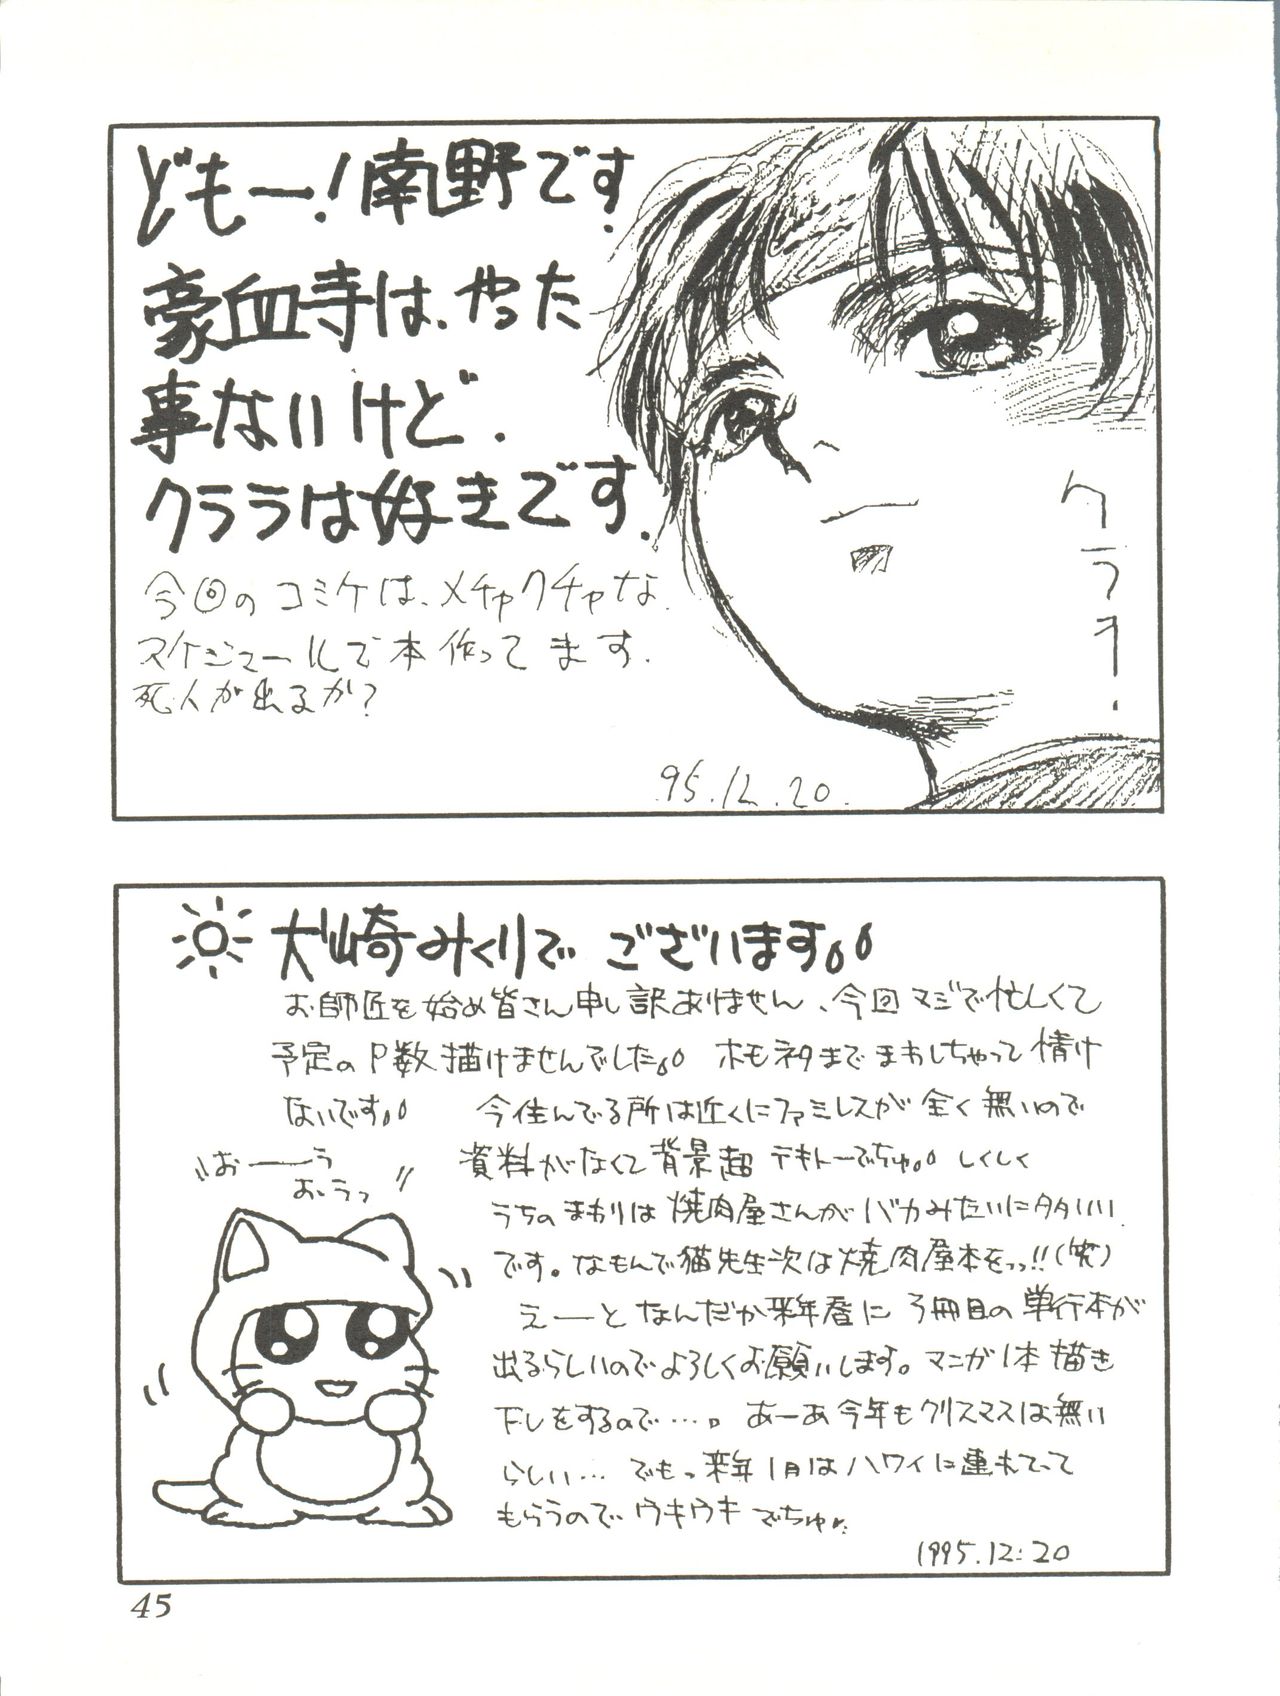 どもー!南野です
豪血寺は、やった
事ないけど.
クララは好きです.
今回のコミケは、メチャクチャな
スケジュールで本作ってます.
死人が出るか?
クララ!
95.12.20.
犬崎みくりで ございます。。
お師匠を始め皆さん申し訳ありません、今回マジで忙しくて
予定のP数描けませんでした。。 ホモネタまでまわしちゃって情け
ないです。。 今住んでる所は近くにファミレスが全く無いので
資料がなくて背景超テキトーでちゅ。。 しくしく
うちのまわりは焼肉屋さんがバカみたいにタタいい
です。なもんで猫先生次は焼肉屋本をっっ!!(笑)
えーと なんだか来年春に3冊目の単行本が
出るらしいのでよろしくお願いします。マンガ1本描き
下しをするので…。 あーあ今年もクリスマスは無い
らしい… でもっ来年1月はハワイに連れてって
もらうのでウキウキでちゅ♪
おーーぅ
おぅっ
1995.12.20
45